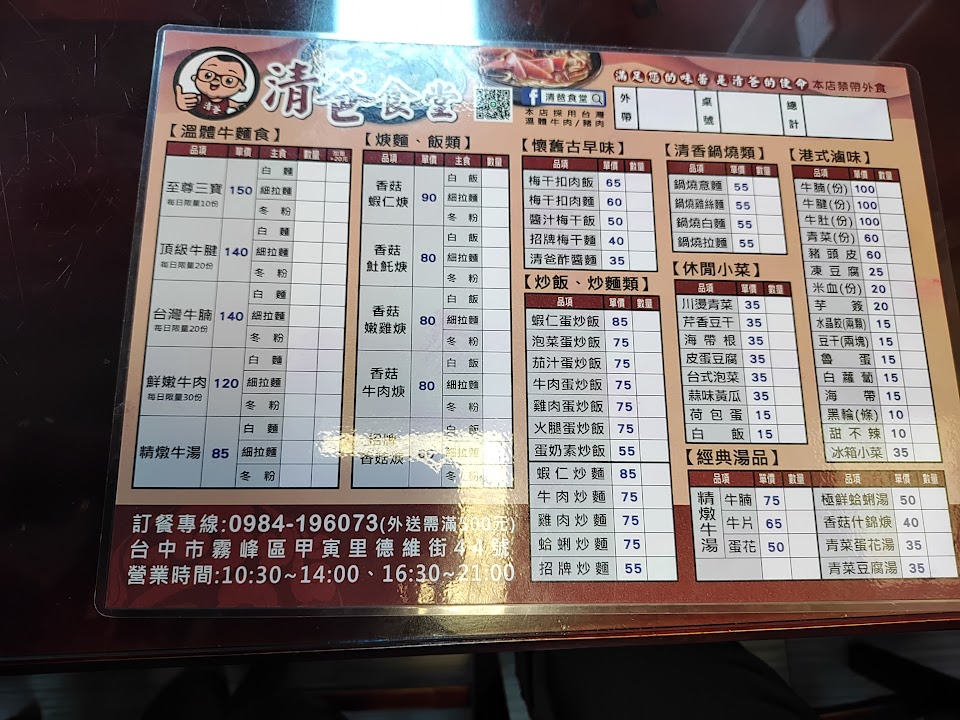 清爸食堂
清爸食堂
本店採用台灣
溫體牛肉/豬肉
滿足您的味蕾是清爸的使命 本店禁帶外食
外帶 桌號 總計
【溫體牛麵食】
品項 單價 主食 數量
至尊三寶 150 白麵 細拉麵 冬粉
每日限量10份
頂級牛腱 140 白麵 細拉麵 冬粉
每日限量20份
台灣牛腩 140 白麵 細拉麵 冬粉
每日限量20份
鮮嫩牛肉 120 白麵 細拉麵 冬粉
每日限量30份
精燉牛湯 85 白麵 細拉麵 冬粉
【焿麵、飯類】
品項 單價 主食 數量
香菇蝦仁焿 90 白飯 細拉麵 冬粉
香菇魠焿 80 白飯 細拉麵 冬粉
香菇嫩雞焿 80 白飯 細拉麵 冬粉
香菇牛肉焿 80 白飯 細拉麵 冬粉
香菇焿 白飯 細拉麵 冬粉
【懷舊古早味】
品項 單價 數量
梅干扣肉飯 65
梅干扣肉麵 60
醬汁梅干飯 50
招牌梅干麵 40
清爸酢醬麵 35
【炒飯、炒麵類】
品項 單價 數量
蝦仁蛋炒飯 85
泡菜蛋炒飯 75
茄汁蛋炒飯 75
牛肉蛋炒飯 75
雞肉蛋炒飯 75
火腿蛋炒飯 75
蛋奶素炒飯 55
蝦仁炒麵 85
牛肉炒麵 75
雞肉炒麵 75
蛤蜊炒麵 75
招牌炒麵 55
【清香鍋燒類】
品項 單價 數量
鍋燒意麵 55
鍋燒雞絲麵 55
鍋燒白麵 55
鍋燒拉麵 55
【休閒小菜】
品項 單價 數量
川燙青菜 35
芹香豆干 35
海帶根 35
皮蛋豆腐 35
台式泡菜 35
蒜味黃瓜 35
荷包蛋 15
白飯 15
【港式滷味】
品項 單價 數量
牛腩(份) 100
牛腱(份) 100
牛肚(份) 100
青菜(份) 60
豬頭皮 60
凍豆腐 25
米血(份) 20
芋簽 20
水晶餃(兩顆) 15
豆干(兩塊) 15
魯蛋 15
白蘿蔔 15
海帶 15
黑輪(條) 10
甜不辣 10
冰箱小菜 35
【經典湯品】
品項 單價 數量 品項 單價 數量
精燉牛湯 牛腩 75 極鮮蛤蜊湯 50
牛片 65 香菇什錦焿 40
蛋花 50 青菜蛋花湯 35
青菜豆腐湯 35
訂餐專線:0984-196073(外送需滿500元)
台中市霧峰區甲寅里德維街44號
營業時間:10:30~14:00、16:30~21:00